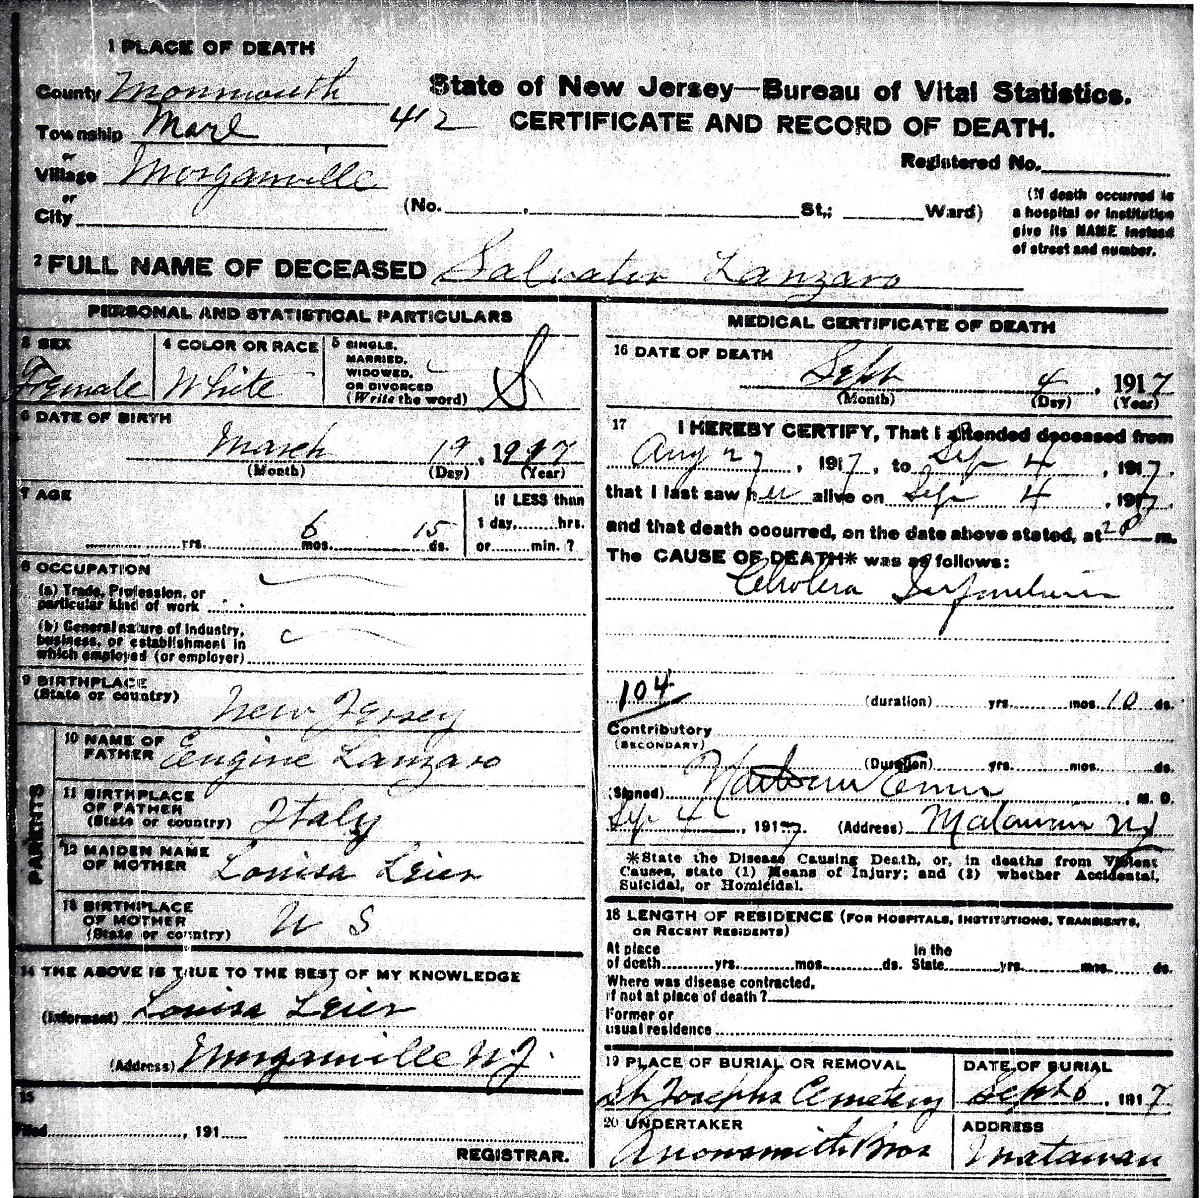 1 PLACE OF DEATH
County Monmouth
Township Marl 412
or
Village Morganville
or
City
State of New Jersey—Bureau of Vital Statistics.
CERTIFICATE AND RECORD OF DEATH.
Registered No.
(No. , St.; Ward)
(If death occurred in
a hospital or institution
give its NAME instead
of street and number.
2 FULL NAME OF DECEASED Salvater Lanzaro
PERSONAL AND STATISTICAL PARTICULARS
3 SEX
Female
4 COLOR OR RACE
White
5 SINGLE,
MARRIED,
WIDOWED,
OR DIVORCED
(Write the word)
S
6 DATE OF BIRTH
March 19, 1917
(Month) (Day) (Year)
7 AGE
If LESS than
1 day, hrs.
yrs. 6 mos. 15 ds. or min. ?
8 OCCUPATION
(a) Trade, Profession, or
particular kind of work
(b) General nature of industry,
business, or establishment in
which employed (or employer)
9 BIRTHPLACE
(State or country)
New Jersey
PARENTS
10 NAME OF
FATHER Eugine Lanzaro
11 BIRTHPLACE
OF FATHER
(State or country) Italy
12 MAIDEN NAME
OF MOTHER Louisa Leier
13 BIRTHPLACE
OF MOTHER
(State or country) U S
14 THE ABOVE IS TRUE TO THE BEST OF MY KNOWLEDGE
(Informant) Louisa Leier
(Address) Morganville N.J.
15
Filed , 191
REGISTRAR.
MEDICAL CERTIFICATE OF DEATH
16 DATE OF DEATH
Sept 4, 1917
(Month) (Day) (Year)
17 I HEREBY CERTIFY, That I attended deceased from
Aug 27, 1917, to Sep 4, 1917.
that I last saw her alive on Sep 4, 1917
and that death occurred, on the date above stated, at m.
The CAUSE OF DEATH* was as follows:
Cholera Infantum
104
(duration) yrs. mos. 10 ds.
Contributory
(SECONDARY)
(Duration) yrs. mos. ds.
(Signed) , M. D.
Sep 4, 1917. (Address) Matawan NJ
*State the Disease Causing Death, or, in deaths from Violent
Causes, state (1) Means of Injury; and (2) whether Accidental,
Suicidal, or Homicidal.
18 LENGTH OF RESIDENCE (FOR HOSPITALS, INSTITUTIONS, TRANSIENTS,
OR RECENT RESIDENTS)
At place
of death yrs. mos. ds.
In the
State yrs. mos. ds.
Where was disease contracted,
if not at place of death?
Former or
usual residence
19 PLACE OF BURIAL OR REMOVAL
St Josephs Cemetery
DATE OF BURIAL
Sept 6 1917
20 UNDERTAKER
Arrowsmith Bros
ADDRESS
Matawan